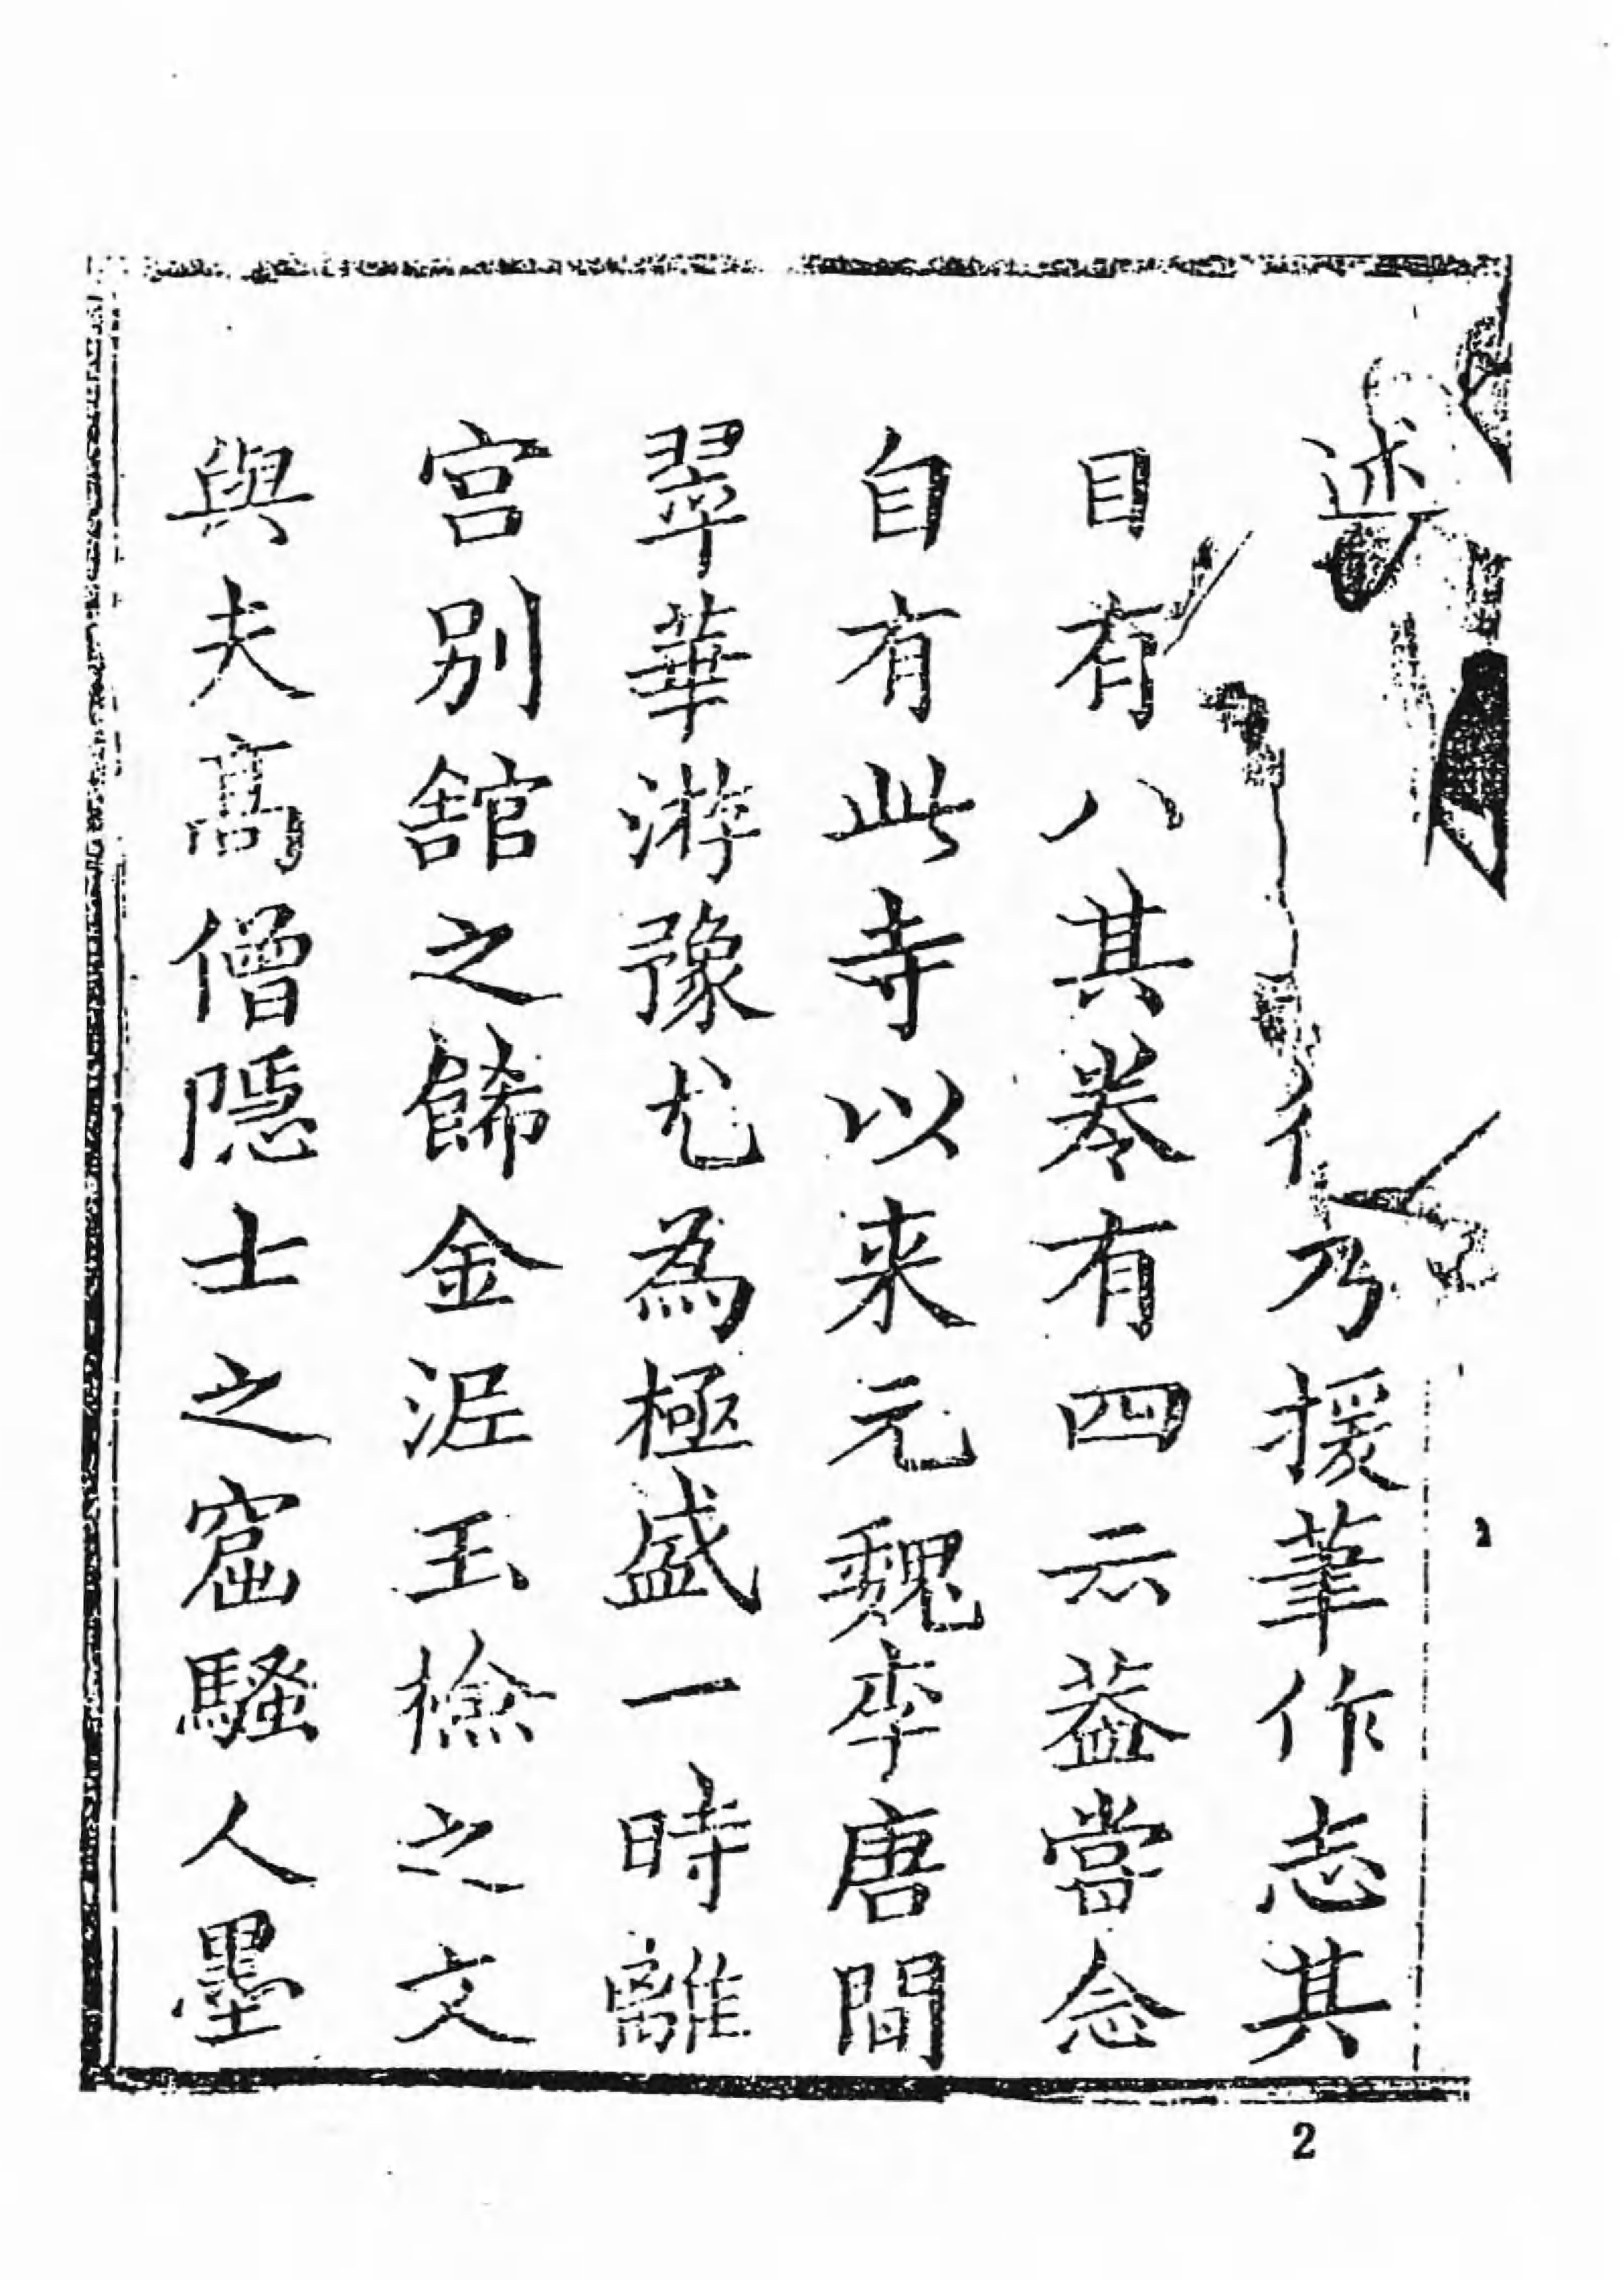 述乃援筆作志其
目有八其卷有四云葢當念
自有此寺以来元魏李唐間
翠華游豫尤為極盛一時離
宮別舘之餙金泥玉檢之文
與夫高僧隱士之窟騷人墨
2